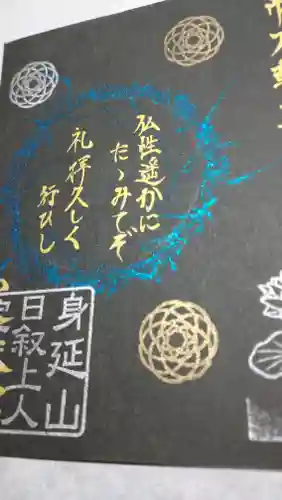 弘誓遙かに
たゝみてぞ
礼拝久しく
行ひし
身延山
日叙上人